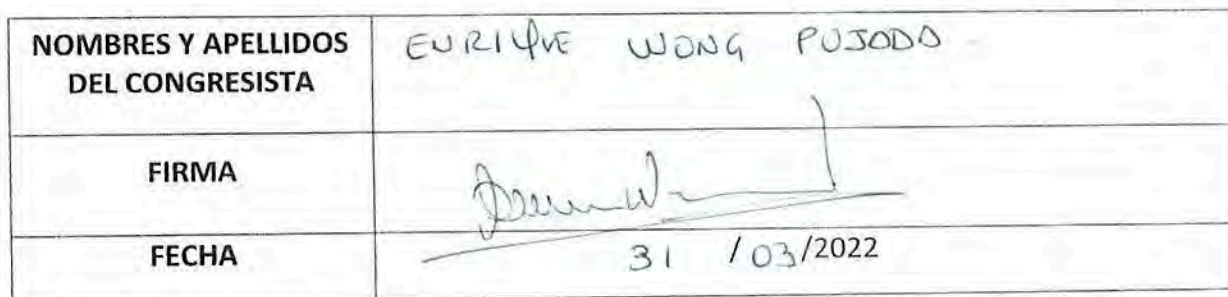 NOMBRES Y APELLIDOS
DEL CONGRESISTA
ENRIQUE WONG PUJADA
FIRMA
FECHA
31 / 03/2022